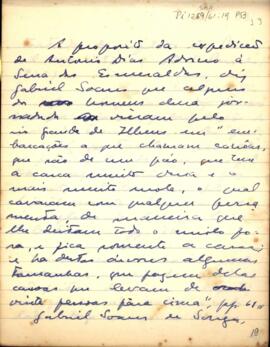 SBH
Pi 1289/61-19 P53
33
A proposito da expedição
de Antonio Dias Adorno à
Serra das Esmeraldas, diz
Gabriel Soares que alguns
do homens dessa jor-
nada vieram pelo
rio grande de Ilheus em "em-
barcações a que chamam canôas,
que são de um páo, que tem
a casca muito dura e o
mais muito mole, o qual
cavacam com qualquer ferra-
menta, de maneira que
lhe deitam todo o miolo fo-
ra, e fica somente a casca;
e ha destas árvores algumas
tamanhas, que fazem delas
canoas que levam de
vinte pessoas pâra cima",
Gabriel Soares de Sousa,